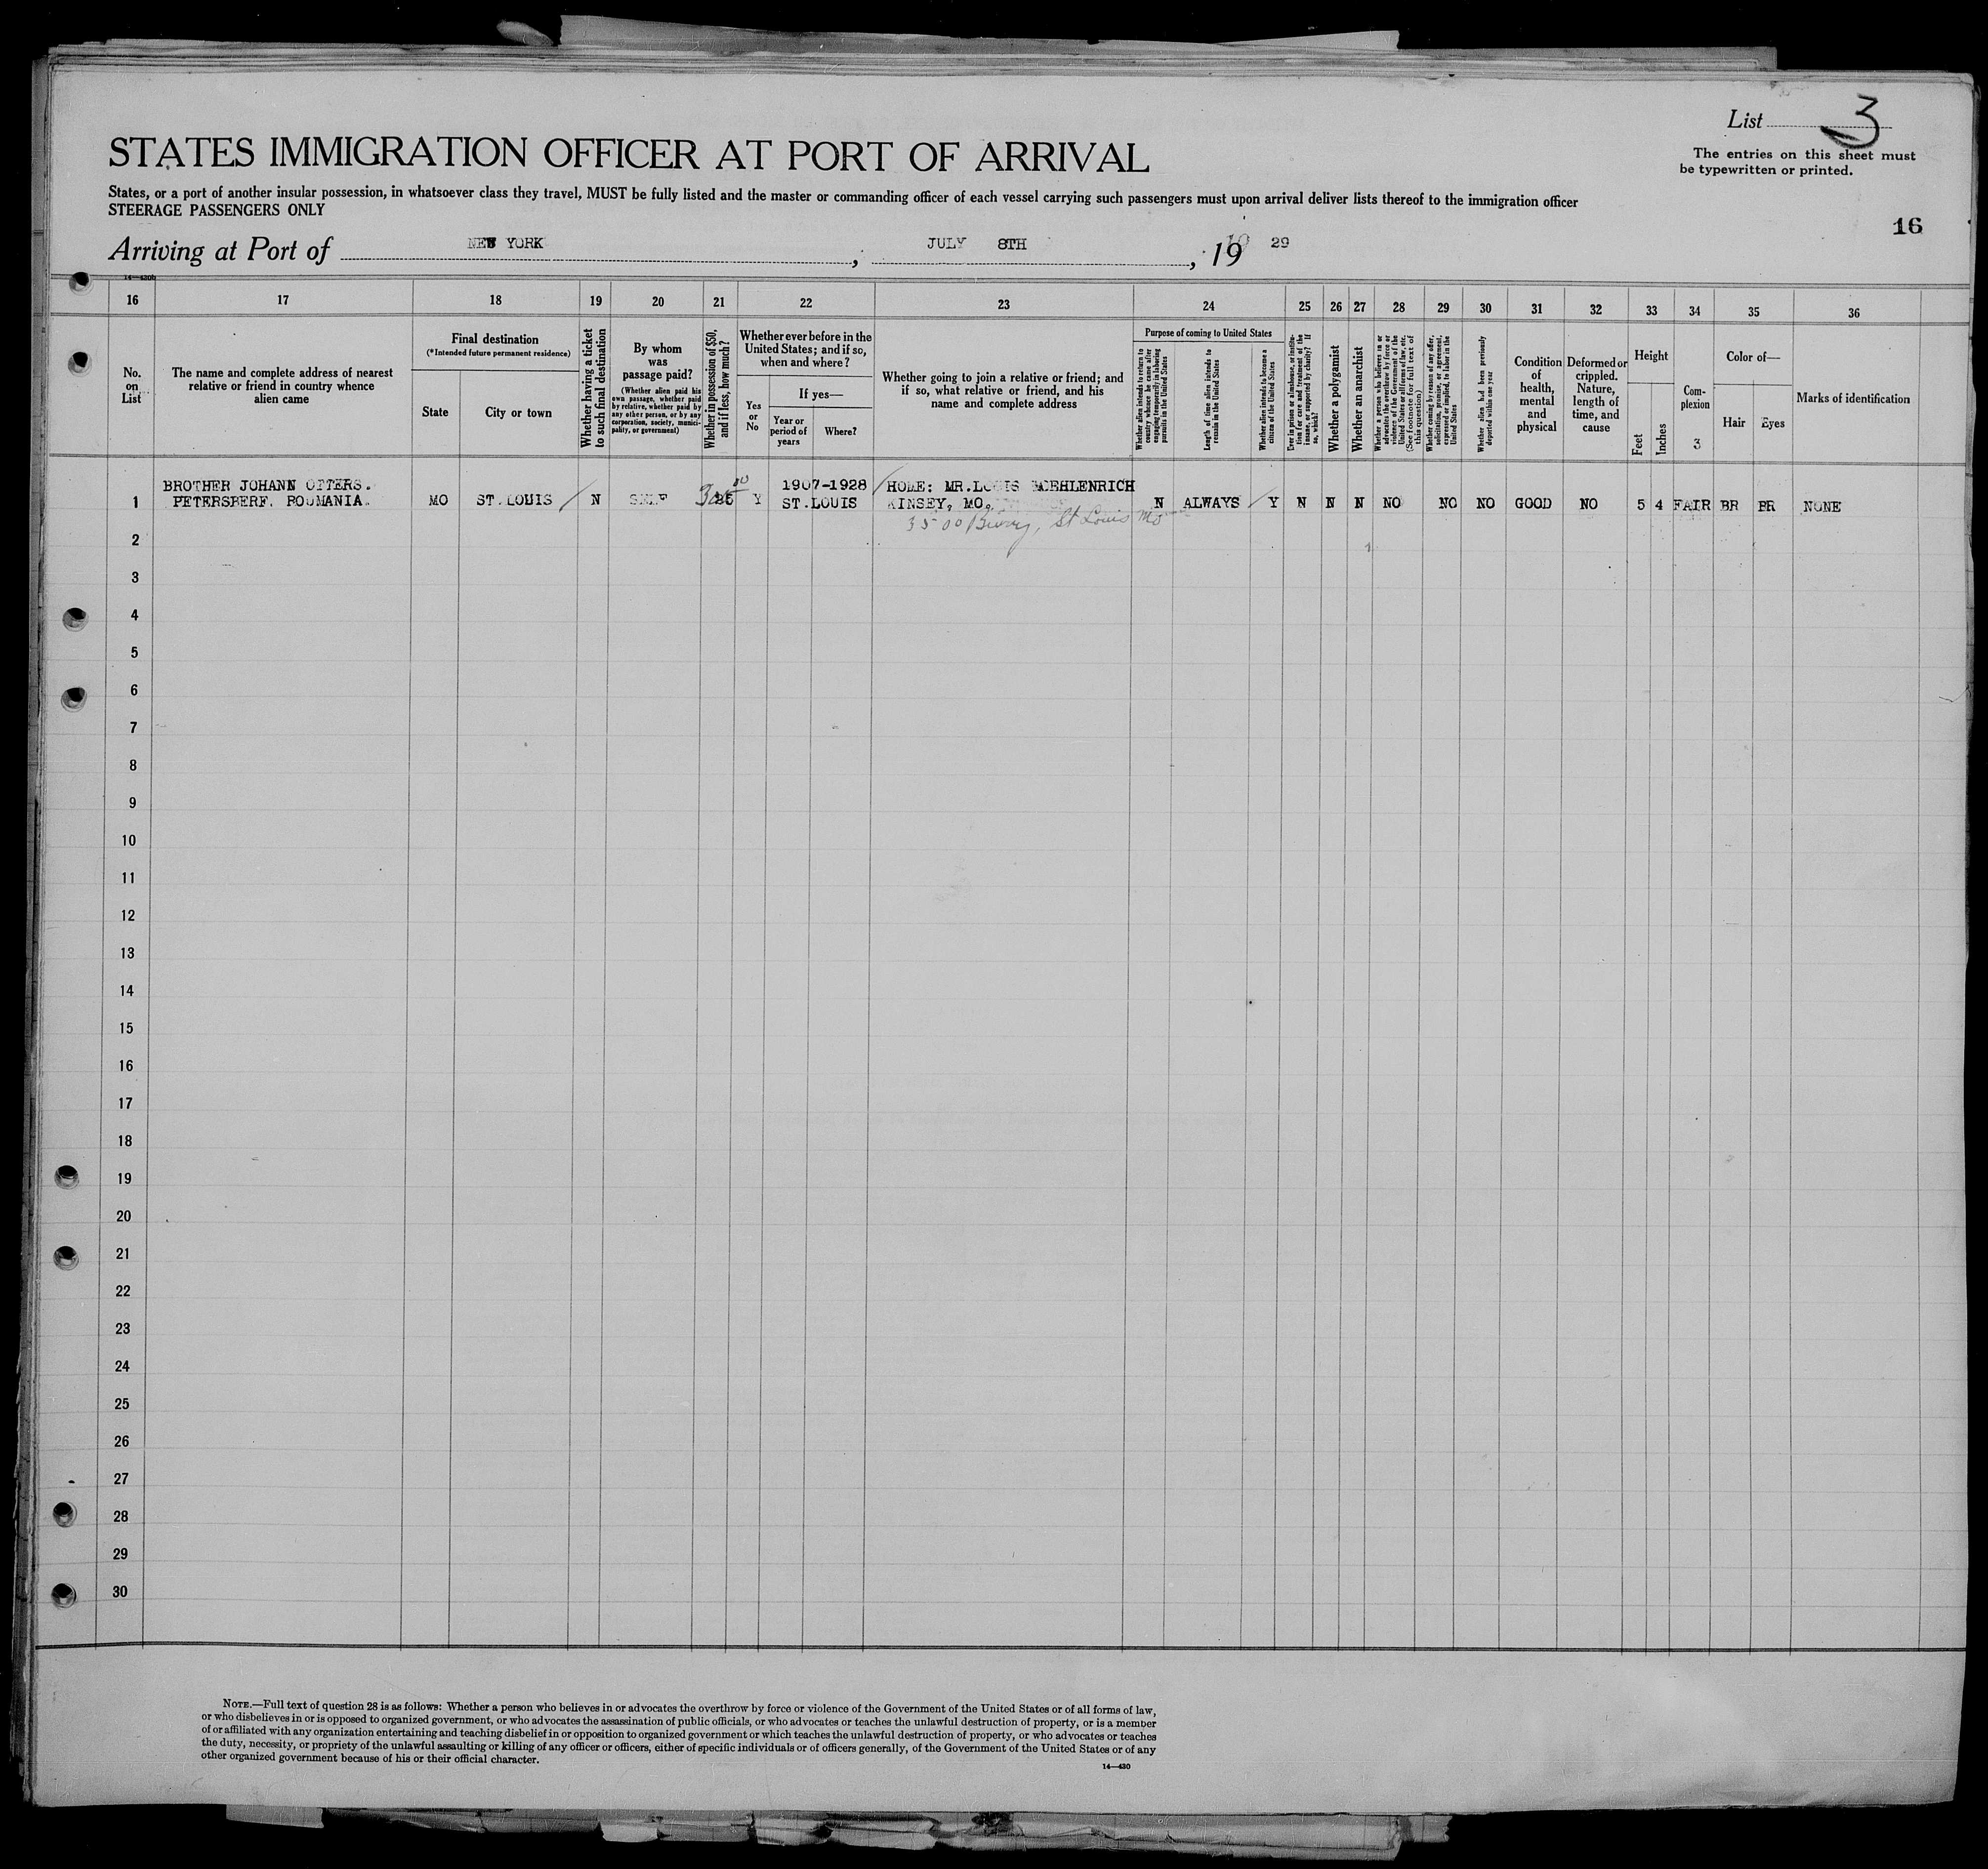 List 3
The entries on this sheet must
be typewritten or printed.
STATES IMMIGRATION OFFICER AT PORT OF ARRIVAL
States, or a port of another insular possession, in whatsoever class they travel, MUST be fully listed and the master or commanding officer of each vessel carrying such passengers must upon arrival deliver lists thereof to the immigration officer
STEERAGE PASSENGERS ONLY
16
Arriving at Port of NEW YORK, JULY 8TH, 19 29
16 17 18 19 20 21 22 23 24 25 26 27 28 29 30 31 32 33 34 35 36
No.
on
List
The name and complete address of nearest
relative or friend in country whence
alien came
Final destination
(*Intended future permanent residence)
State
City or town
Whether having a ticket
to such final destination
By whom
was
passage paid?
(Whether alien paid his
own passage, whether paid
by relative, whether paid by
any other person, or by any
corporation, society, munici-
pality, or government)
Whether in possession of $50,
and if less, how much?
Whether ever before in the
United States; and if so,
when and where?
Yes
or
No
If yes—
Year or
period of
years
Where?
Whether going to join a relative or friend; and
if so, what relative or friend, and his
name and complete address
Purpose of coming to United States
Whether alien intends to return to
country whence he came after
engaging temporarily in laboring
pursuits in the United States
Length of time alien intends to
remain in the United States
Whether alien intends to become a
citizen of the United States
Ever in prison or almshouse, or institu-
tion for care and treatment of the
insane, or supported by charity? If
so, which?
Whether a polygamist
Whether an anarchist
Whether a person who believes in or
advocates the overthrow by force or
violence of the Government of the
United States or all forms of law, etc.
(See footnote for full text of
this question)
Whether coming by reason of any offer,
solicitation, promise, or agreement,
expressed or implied, to labor in the
United States
Whether alien had been previously
deported within one year
Condition
of
health,
mental
and
physical
Deformed or
crippled.
Nature,
length of
time, and
cause
Height
Feet
Inches
Com-
plexion
3
Color of—
Hair
Eyes
Marks of identification
BROTHER JOHANN
1907-1928 MR.LOUIS
1 PETERSBERF. ROUMANIA. MO ST.LOUIS N SELF Y ST.LOUIS KINSEY, MO. N ALWAYS Y N N N NO NO NO GOOD NO 5 4 FAIR BR BR NONE
3500 St Louis Mo
2
3
4
5
6
7
8
9
10
11
12
13
14
15
16
17
18
19
20
21
22
23
24
25
26
27
28
29
30
NOTE.—Full text of question 28 is as follows: Whether a person who believes in or advocates the overthrow by force or violence of the Government of the United States or of all forms of law,
or who disbelieves in or is opposed to organized government, or who advocates the assassination of public officials, or who advocates or teaches the unlawful destruction of property, or is a member
of or affiliated with any organization entertaining and teaching disbelief in or opposition to organized government or which teaches the unlawful destruction of property, or who advocates or teaches
the duty, necessity, or propriety of the unlawful assaulting or killing of any officer or officers, either of specific individuals or of officers generally, of the Government of the United States or of any
other organized government because of his or their official character.
14—430